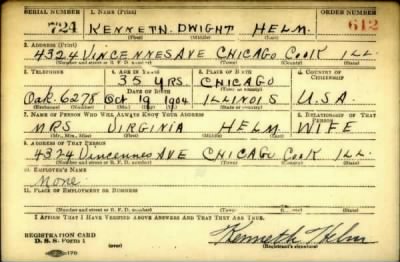 SERIAL NUMBER 1. NAME (Print) ORDER NUMBER
724 KENNETH DWIGHT HELM 612
(First) (Middle) (Last)
2. ADDRESS (Print)
4324 VINCENNES AVE CHICAGO COOK ILL
(Number and street or R. F. D. number) (Town) (County) (State)
3. TELEPHONE 4. AGE IN YEARS 5. PLACE OF BIRTH 6. COUNTRY OF CITIZENSHIP
35 YRS. CHICAGO
DATE OF BIRTH (Town or county)
Oak. 6278 Oct 19 1904 ILLINOIS U.S.A.
(Exchange) (Number) (Mo.) (Day) (Yr.) (State or country)
7. NAME OF PERSON WHO WILL ALWAYS KNOW YOUR ADDRESS 8. RELATIONSHIP OF THAT PERSON
MRS VIRGINIA HELM WIFE
(Mr., Mrs., Miss) (First) (Middle) (Last)
9. ADDRESS OF THAT PERSON
4324 Vincennes AVE CHICAGO COOK ILL.
(Number and street or R. F. D. number) (Town) (County) (State)
10. EMPLOYER'S NAME
None
11. PLACE OF EMPLOYMENT OR BUSINESS
(Number and street or R. F. D. number) (Town) (County) (State)
I AFFIRM THAT I HAVE VERIFIED ABOVE ANSWERS AND THAT THEY ARE TRUE.
REGISTRATION CARD
D. S. S. Form 1 Kenneth Helm
(Registrant's signature)